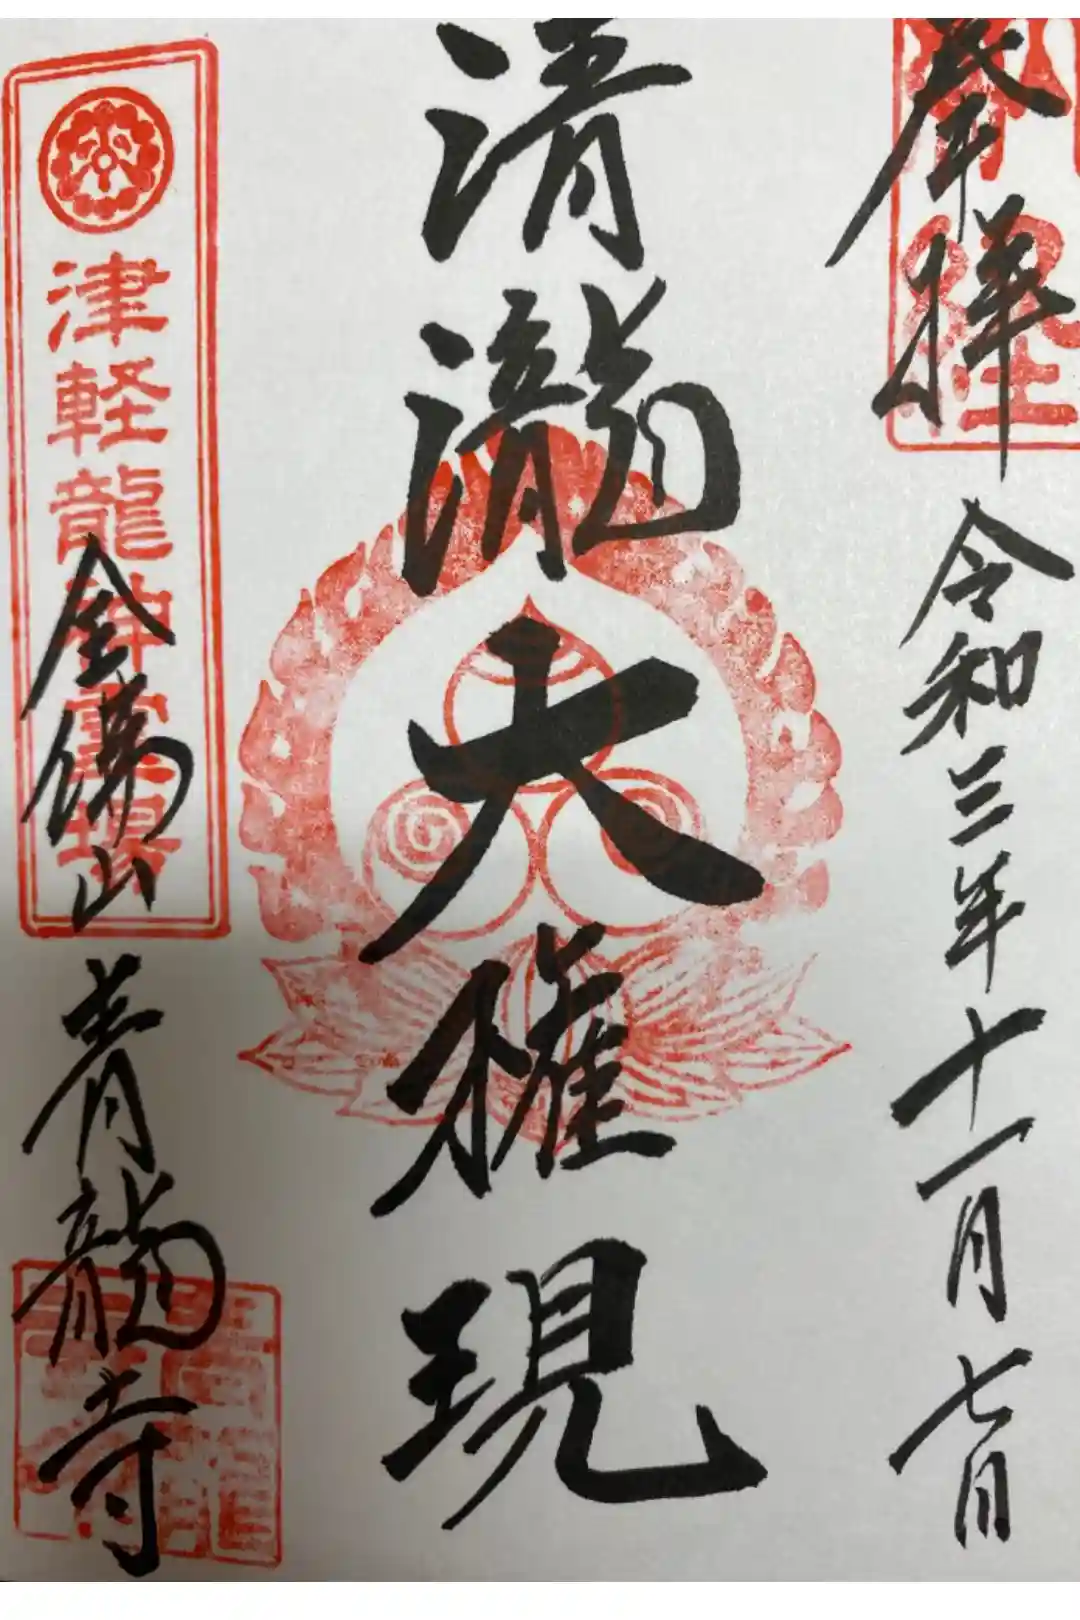 奉拝
令和三年十一月七日
清瀧大権現
津軽龍神霊場
金光山
青龍寺